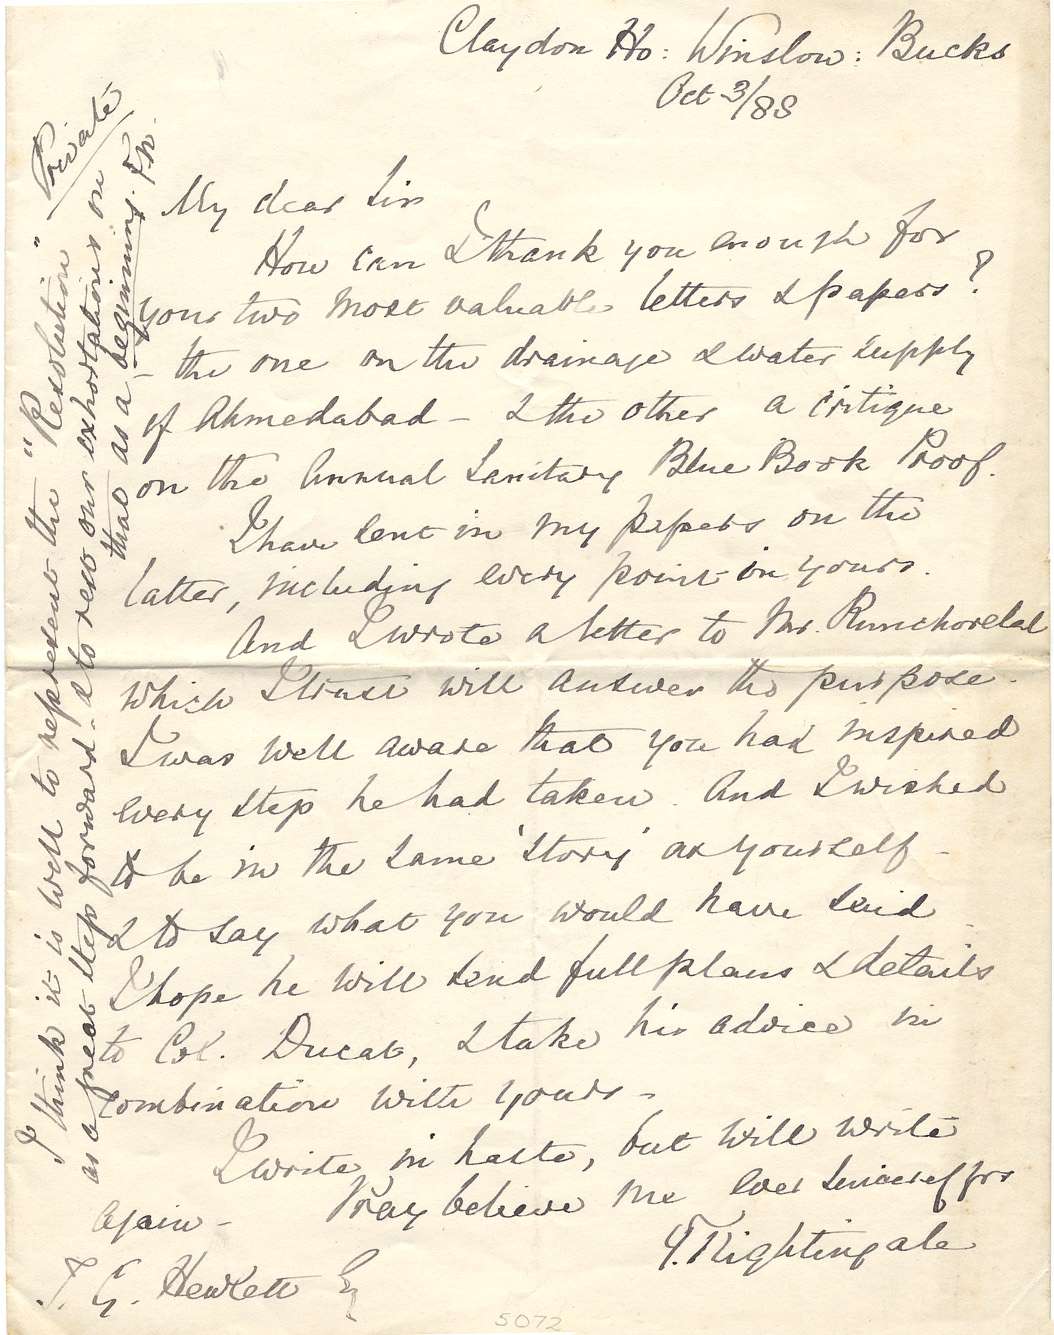 Claydon Ho: Winslow: Bucks
Oct 3/88
My dear Sir
How can I thank you enough for
your two most valuable letters & papers?
- the one on the drainage & water supply
of Ahmedabad - & the other a critique
on the Annual Sanitary Blue Book Proof.
I have sent in my papers on the
latter, including every point in yours.
And I wrote a letter to Mr. Runchorelal
which I trust will answer the purpose.
I was well aware that you had inspired
every step he had taken. And I wished
to be in the same 'story' as yourself -
& to say what you would have said
I hope he will send full plans & details
to Col. Ducat, & take his advice in
combination with yours -
I write in haste, but will write
again - Pray believe me ever sincerely yrs
F. Nightingale
T. G. Hewlett Esq
Private
I think it is well to represent the "Resolution"
as a great step forward - & to rest our exhortations on
that as a beginning. F.N.
5072